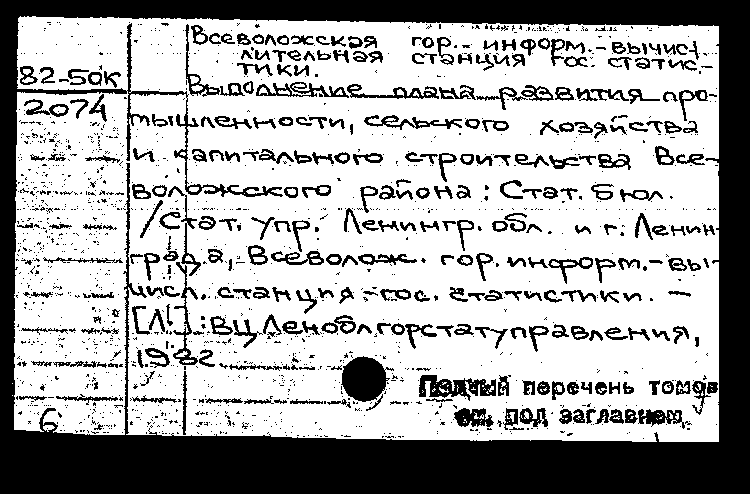 Всеволожская гор.- информ.-вычисл
лительная станция гос. статис-
тики.
82-50к
Выполнение плана развития про-
2074
мышленности, сельского хозяйства
и капитального строительства Все-
воложского района: Стат. бюл.
/Стат. упр. Ленингр. обл. и г. Ленин-
града, Всеволож. гор. информ.-вы-
числ. станция гос. статистики. —
[Л.]: ВЦ Леноблгорстатуправления,
1982
Полный перечень томов
см. под заглавием
6